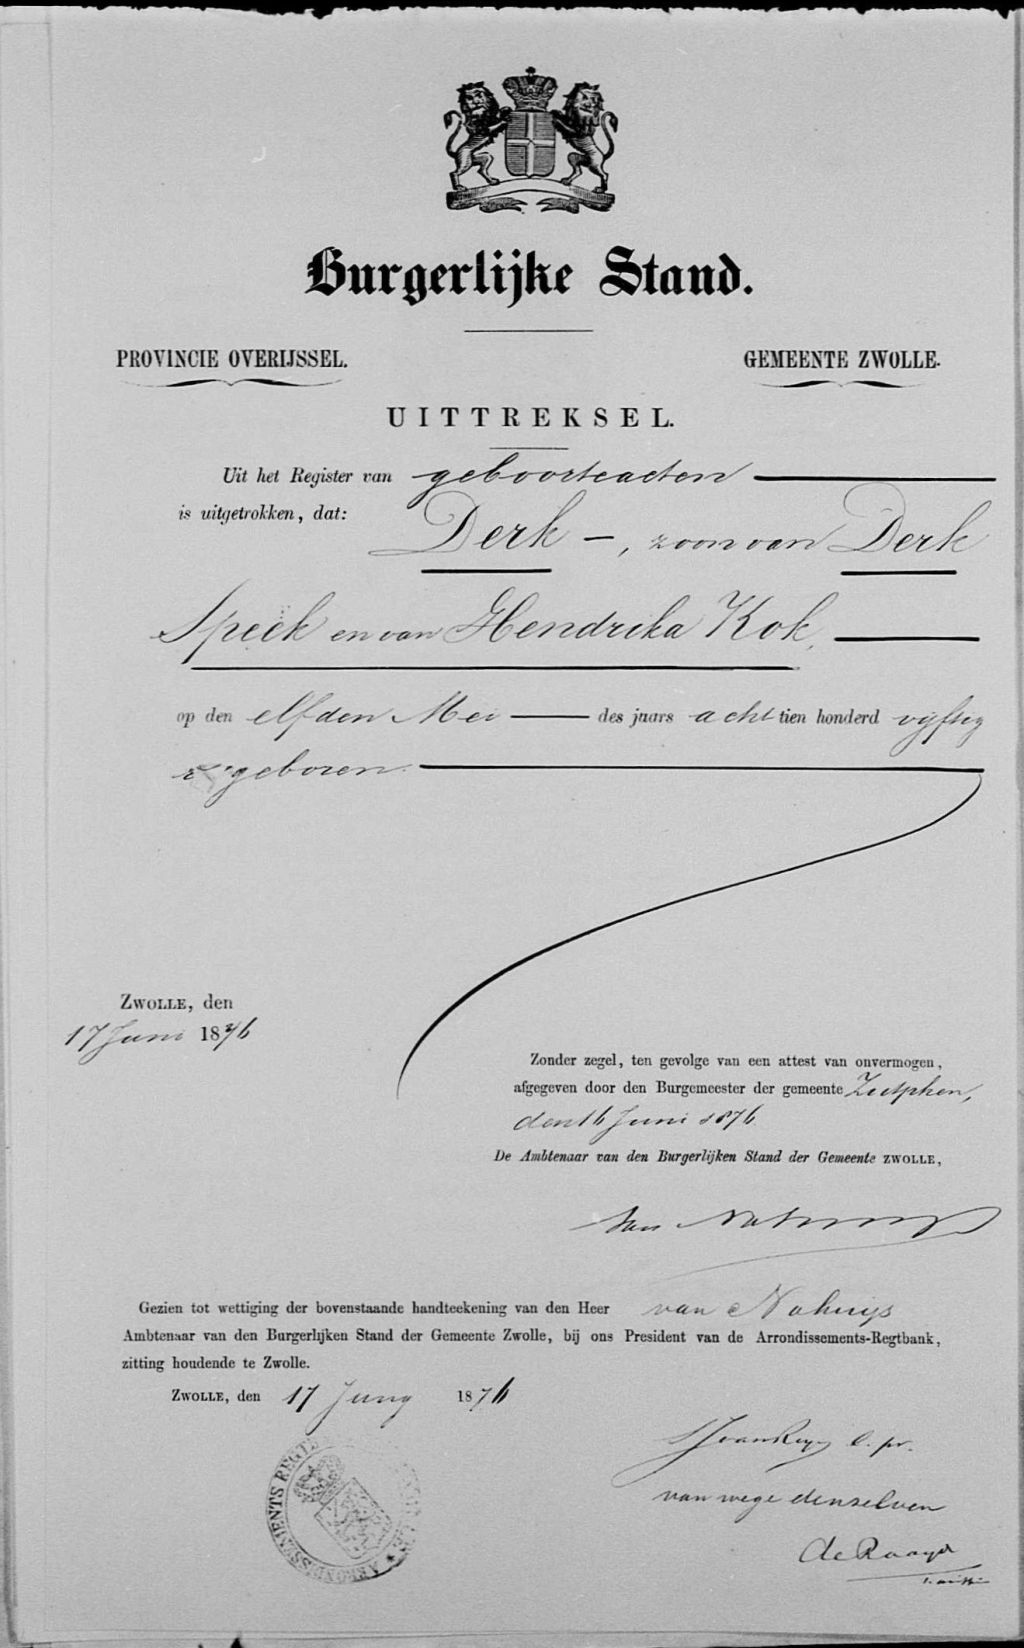 Burgerlijke Stand.
PROVINCIE OVERIJSSEL.
GEMEENTE ZWOLLE.
UITTREKSEL.
Uit het Register van geboorteacten
is uitgetrokken, dat:
Derk —, zoon van Derk
Speek en van Hendrika Kok,
op den elfden Mei — des jaars achttien honderd vijftig
geboren.
ZWOLLE, den
17 Juni 1876
Zonder zegel, ten gevolge van een attest van onvermogen,
afgegeven door den Burgemeester der gemeente Zutphen,
den 16 Juni 1876
De Ambtenaar van den Burgerlijken Stand der Gemeente ZWOLLE,
van Nahuys
Gezien tot wettiging der bovenstaande handteekening van den Heer van Nahuys
Ambtenaar van den Burgerlijken Stand der Gemeente Zwolle, bij ons President van de Arrondissements-Regtbank,
zitting houdende te Zwolle.
ZWOLLE, den 17 Juny 1876
l. pr.
van wege denzelven
ARRONDISSEMENTS REGT